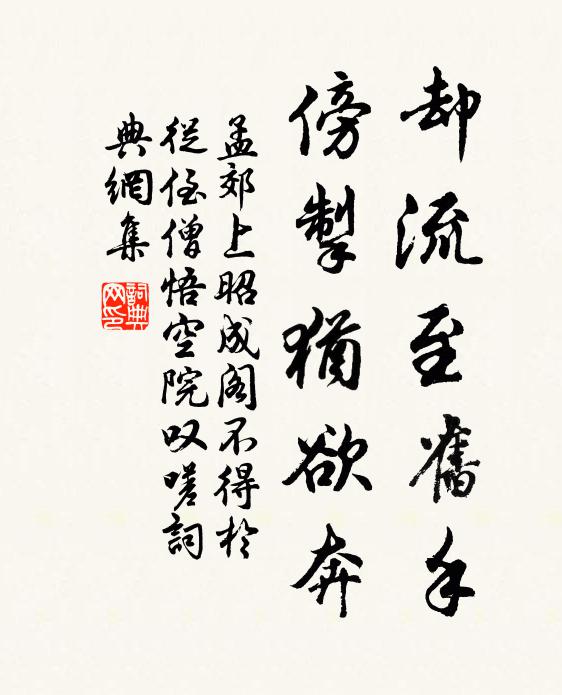 却流至舊手
傍掣猶欲奔
孟郊上昭成阁不得於
從侄僧悟空院叹嗟詞
典網集
詞典網印